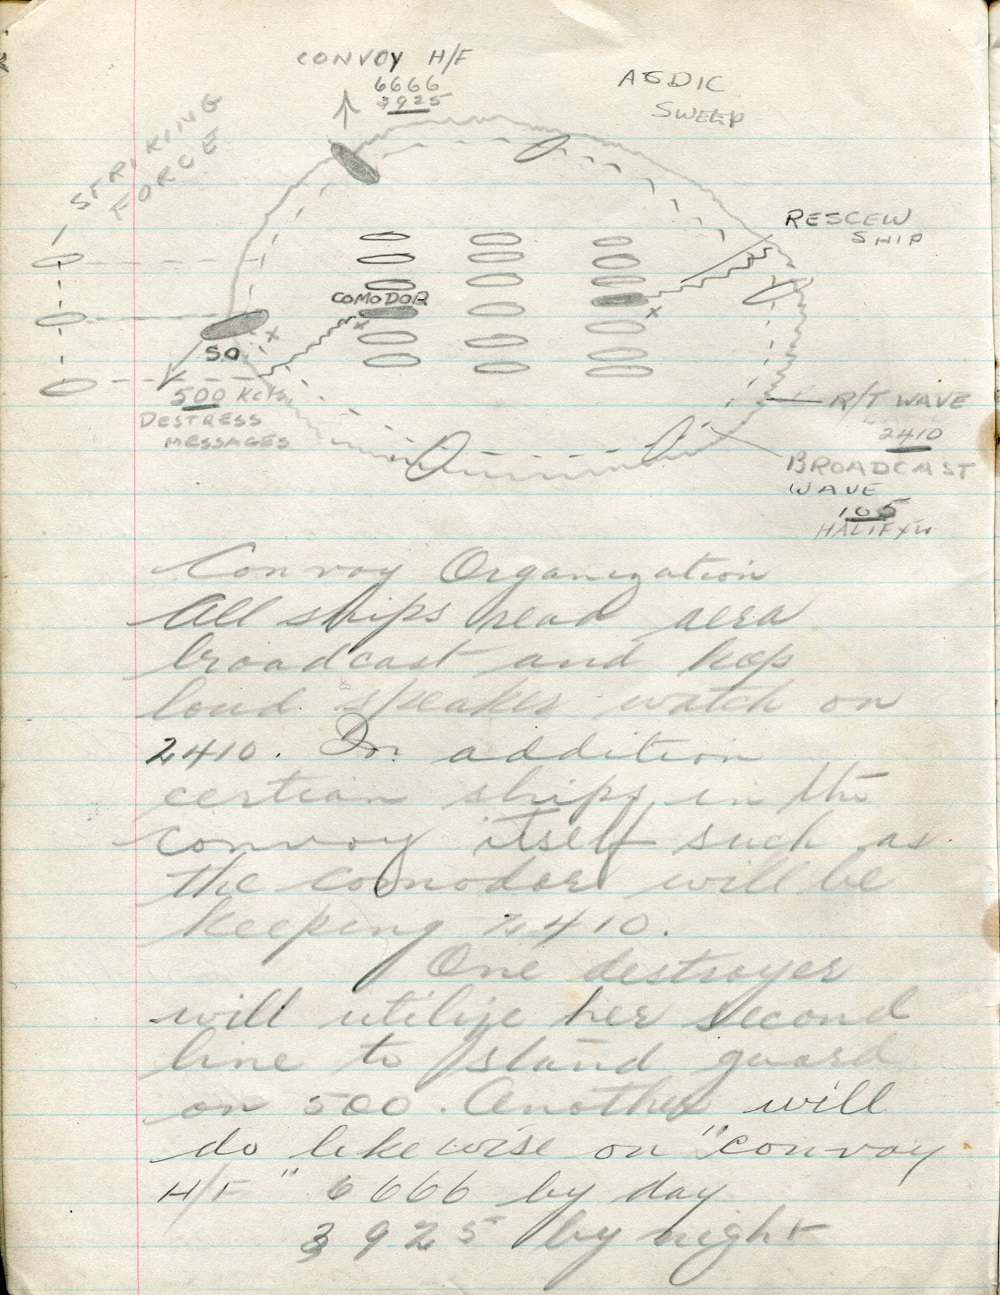 CONVOY H/F
6666
3925
ASDIC
SWEEP
STRIKING
FORCE
RESCEW
SHIP
COMODOR
S.O.
500 Kc/s
DESTRESS
MESSAGES
R/T WAVE
2410
BROADCAST
WAVE
105
HALIFXW
Convoy Organization
All ships read aera
broadcast and kep
loud speaker watch on
2410. In addition
certian ships in the
convoy itself such as
the comodor will be
keeping 2410.
One destroyer
will utilize her second
line to stand guard
on 500. Another will
do likewise on "convoy
H/F" 6666 by day
3925 by night